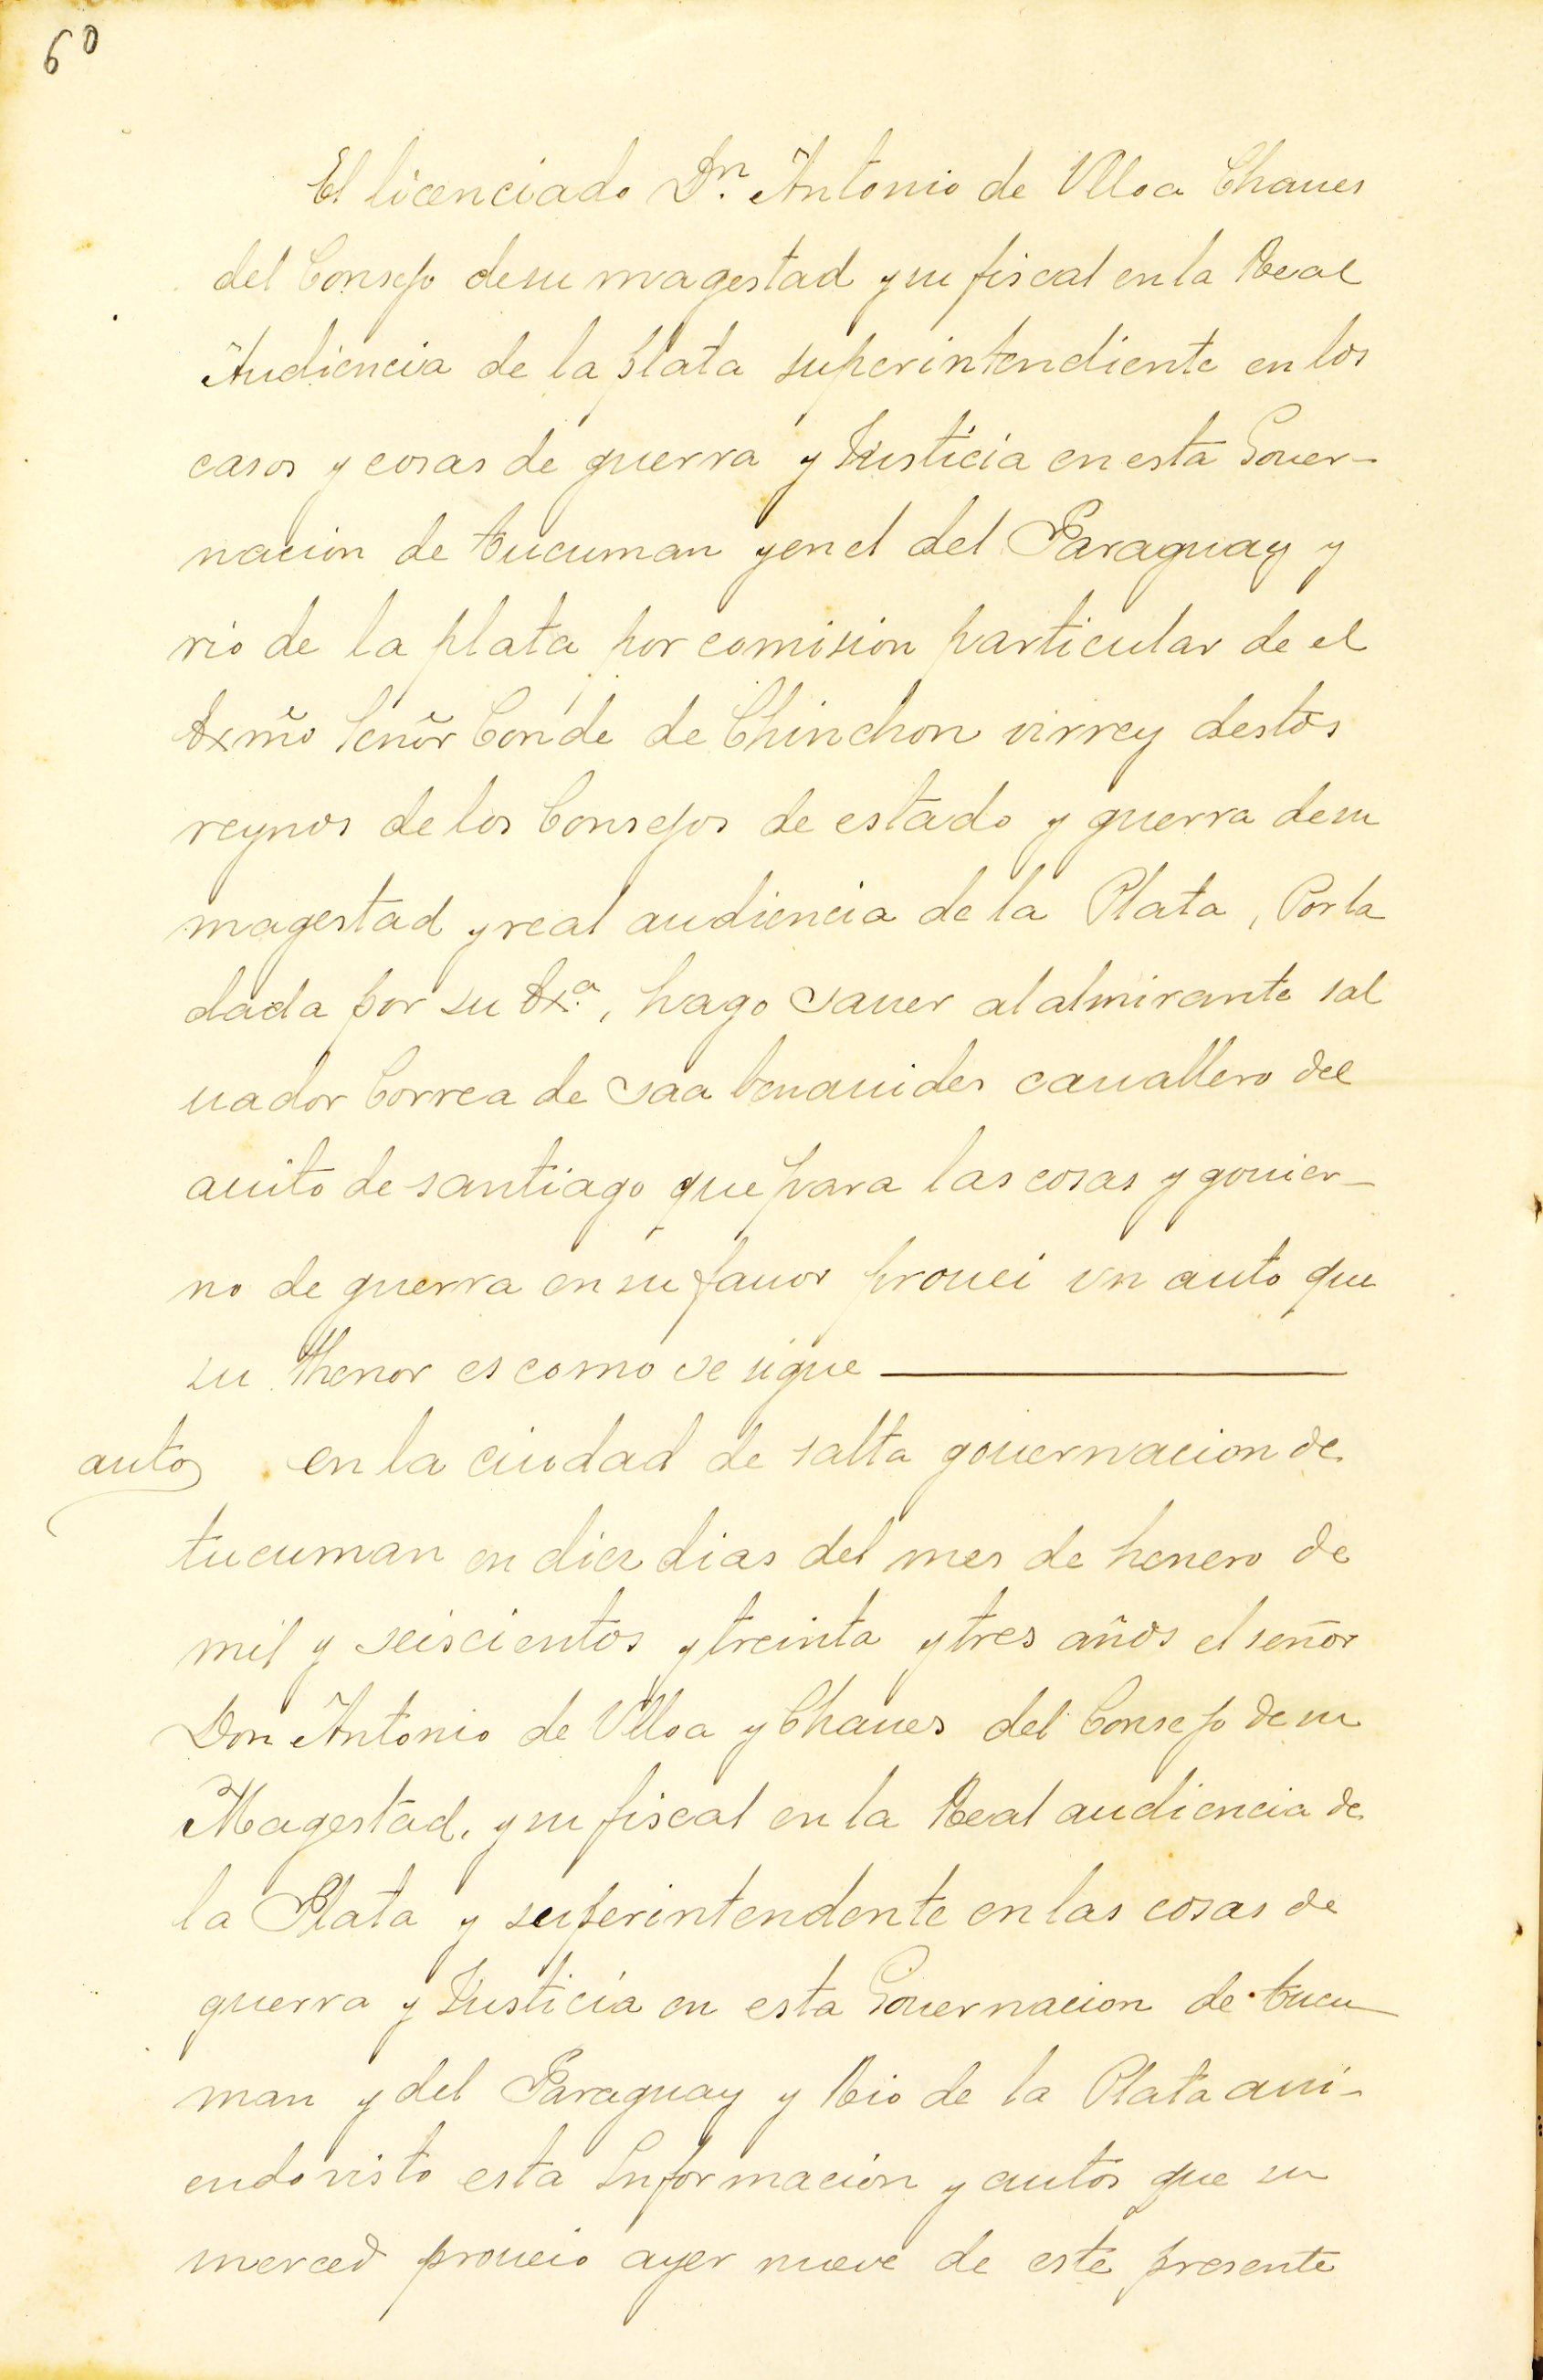 60
El licenciado Dn. Antonio de Vlloa Chaues
del Consejo de su magestad y su fiscal en la Real
Audiencia de la plata superintendiente en los
casos y cosas de guerra y Justicia en esta Gouer-
nacion de tucuman y en el del Paraguay y
rio de la plata por comision particular de el
Exmo Señor Conde de Chinchon virrey destos
reynos de los Consejos de estado y guerra de su
magestad y real audiencia de la Plata, Por la
dada por su Exa., hago sauer al almirante sal
uador Correa de saa benauides cauallero del
auito de santiago que para las cosas y gouier-
no de guerra en su fauor prouei vn auto que
su thenor es como se sigue
auto en la ciudad de salta gouernacion de
tucuman en diez dias del mes de henero de
mil y seiscientos y treinta y tres años el señor
Don Antonio de Vlloa y Chaues del Consejo de su
Magestad, y su fiscal en la Real audiencia de
la Plata y superintendente en las cosas de
guerra y Justicia en esta Gouernacion de tucu
man y del Paraguay y Rio de la Plata aui-
endo visto esta Informacion y autos que su
merced proueio ayer nueve de este presente